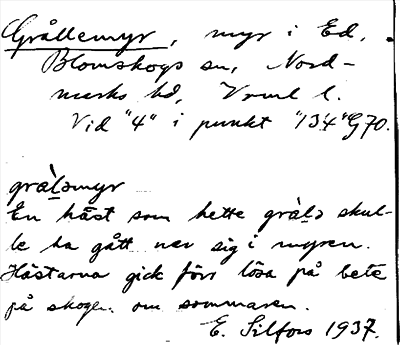 Grållemyr, myr i Ed,
Blomskogs sn, Nord-
marks hd, Vrml l.
Vid "4" i punkt "134" G70.
grålǝmyr
En häst som hette grålǝ skul-
le ha gått ner sig i myren.
Hästarna gick förr lösa på bete
på skogen om sommaren.
E. Silfors 1937.